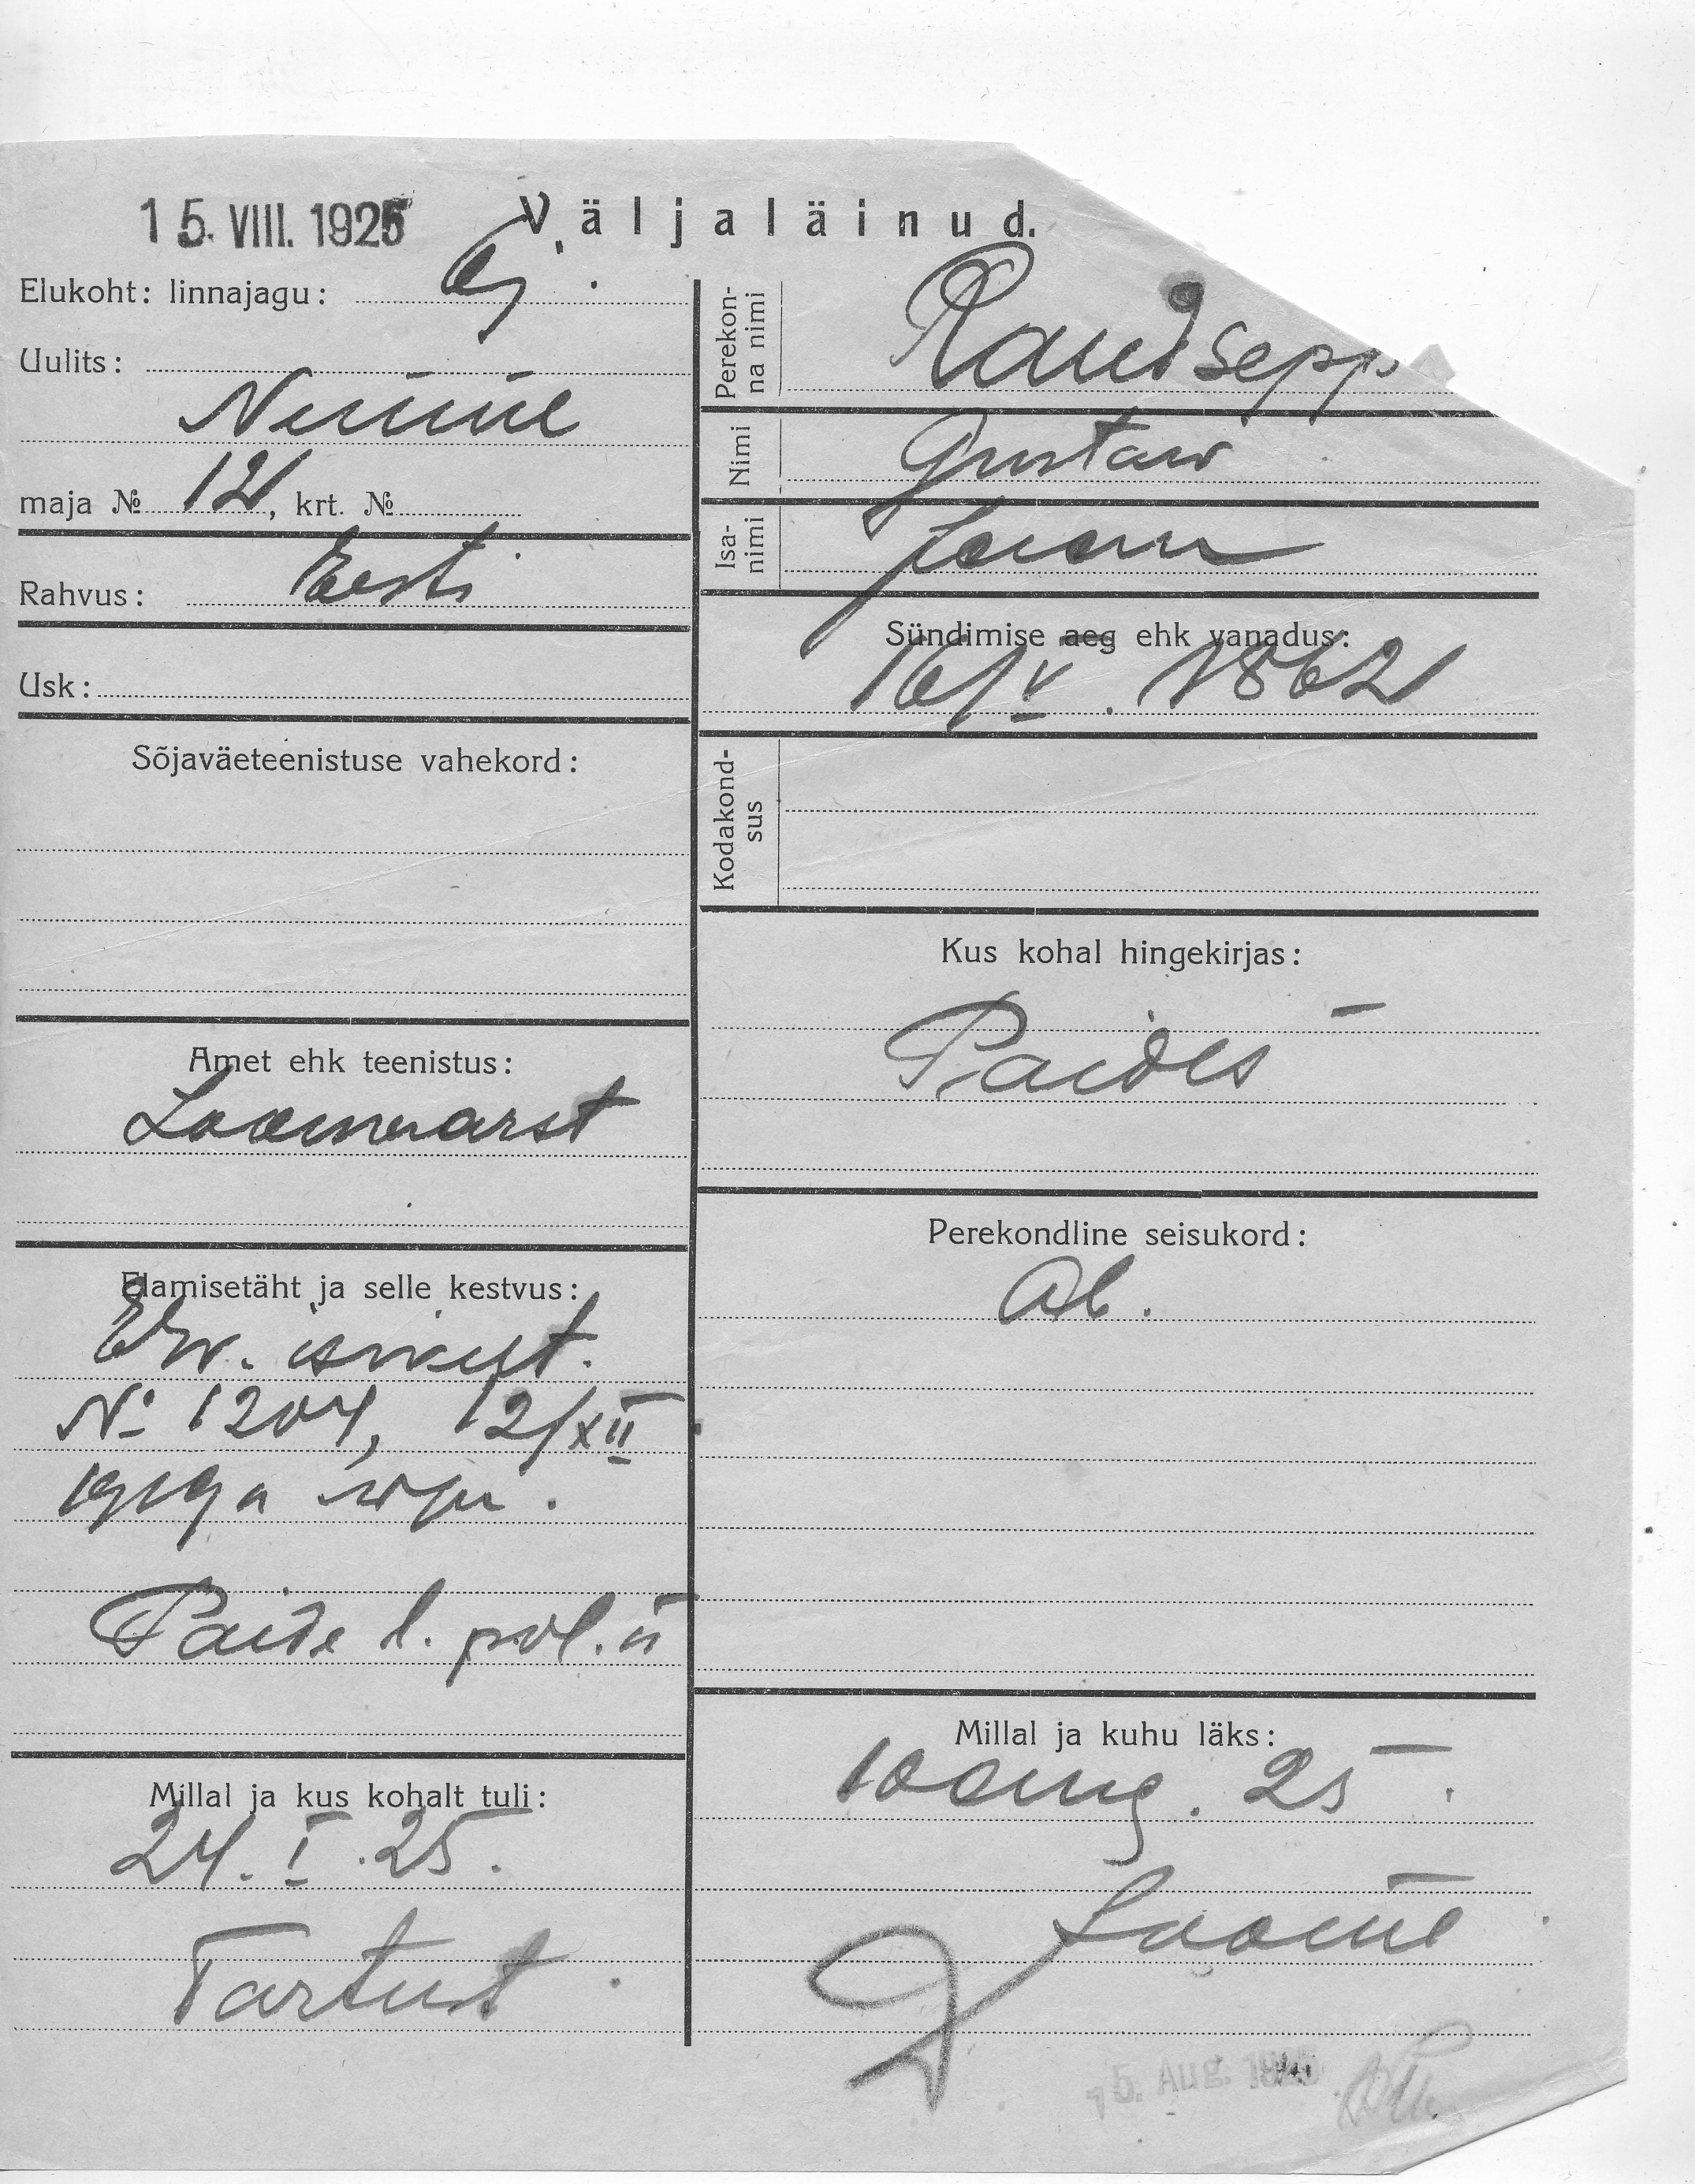 15. VIII. 1925
Väljaläinud.
Elukoht: linnajagu:
Uulits:
Nurme
maja № 12, krt. №
Rahvus: Eesti
Usk:
Sõjaväeteenistuse vahekord:
Amet ehk teenistus:
Loomaarst
Elamisetäht ja selle kestvus:
isikut.
№ 1204, 12/XII
1919 a
Paide l. pol. ü
Millal ja kus kohalt tuli:
24. I. 25.
Tartust
Perekon-
na nimi
Raudsepp
Nimi
Gustaw
Isa-
nimi
Jaan
Sündimise aeg ehk vanadus:
16/V. 1862
Kodakond-
sus
Kus kohal hingekirjas:
Paides
Perekondline seisukord:
Ab.
Millal ja kuhu läks:
10 aug. 25.
15. Aug. 1925